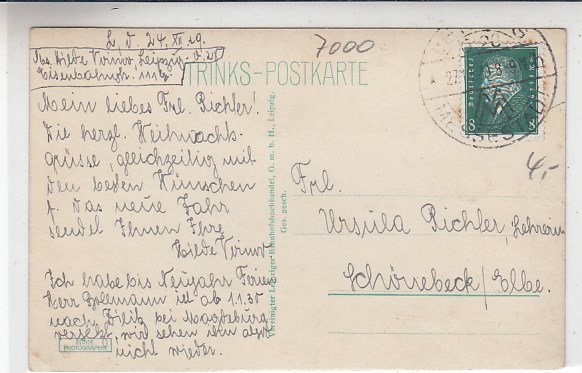 L, d. 24. XII. 29.
Abs. Hilde Virnow, Leipzig O. 28
Eisenbahnstr. 111
7000
TRINKS-POSTKARTE
Mein liebes Frl. Richler!
Die herzl. Weihnachts-
grüsse, gleichzeitig mit
den besten Wünschen
f. das neue Jahr
sendet Ihnen Ihre
Hilde Virnow
Ich habe bis Neujahr Ferien
Herr ist ab 1.1.30
nach bei Magdeburg
versetzt, wir sehen ihn also
nicht wieder.
ECHTE
PHOTOGRAPHIE
Vereinigter Leipziger Bahnhofsbuchhandel, G. m. b. H., Leipzig.
Ges. gesch.
DEUTSCHES REICH
8 8
LEIPZIG
MESSESTADT
4,-
Frl.
Ursula Richler, Lehrerin
Schönebeck/Elbe.